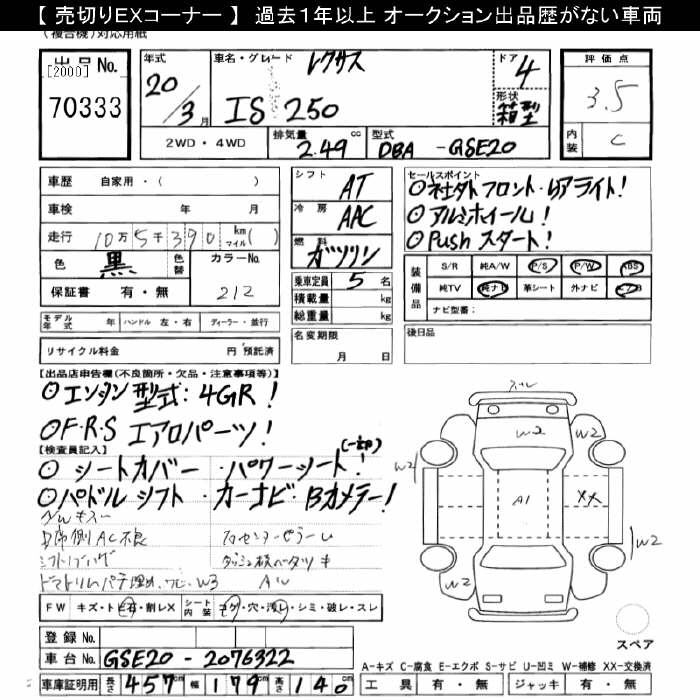 【 売切りEXコーナー 】 過去１年以上 オークション出品歴がない車両
(複合機)対応用紙
出品No.
[2000]
70333
年式
20/3月
車名・グレード
レクサス
IS 250
ドア
4
形状
箱型
評価点
3.5
内装
C
2WD・4WD
排気量
2.49 cc
型式
DBA -GSE20
車歴 自家用・( )
車検 年 月
走行 10万5千390 km マイル( )
色 黒 色替 カラーNo. 212
保証書 有・無
シフト AT
冷房 AAC
燃料 ガソリン
乗車定員 5 名
積載量 kg
総重量 kg
名変期限
月 日
セールスポイント
⊙社外フロント・リアライト!
⊙アルミホイール!
⊙Pushスタート!
装備品
S/R 純A/W P/S P/W ABS
純TV 純ナビ 革シート 外ナビ エアB
ナビ型番:
後日品
モデル年式 年 ハンドル 左・右 ディーラー・並行
リサイクル料金 円 預託済
【出品店申告欄(不良箇所・欠品・注意事項等)】
⊙エンジン型式:4GR!
⊙F・R・S エアロパーツ!
【検査員記入】
⊙シートカバー・パワーシート!(一部)
⊙パドルシフト・カーナビ・Bカメラー!
内ムキズ
AC不良
W3
FW キズ・ト ヒ石・割レX シート内装 コゲ・穴・汚レ・シミ・破レ・スレ
登録No.
車台No. GSE20-2076322
車庫証明用 長さ 457cm 幅 179cm 高さ 140cm
W2
W2
W2
W2
A1
XX
W2
W2
スペア
A-キズ C-腐食 E-エクボ S-サビ U-凹ミ W-補修 XX-交換済
工具 有・無 ジャッキ 有・無